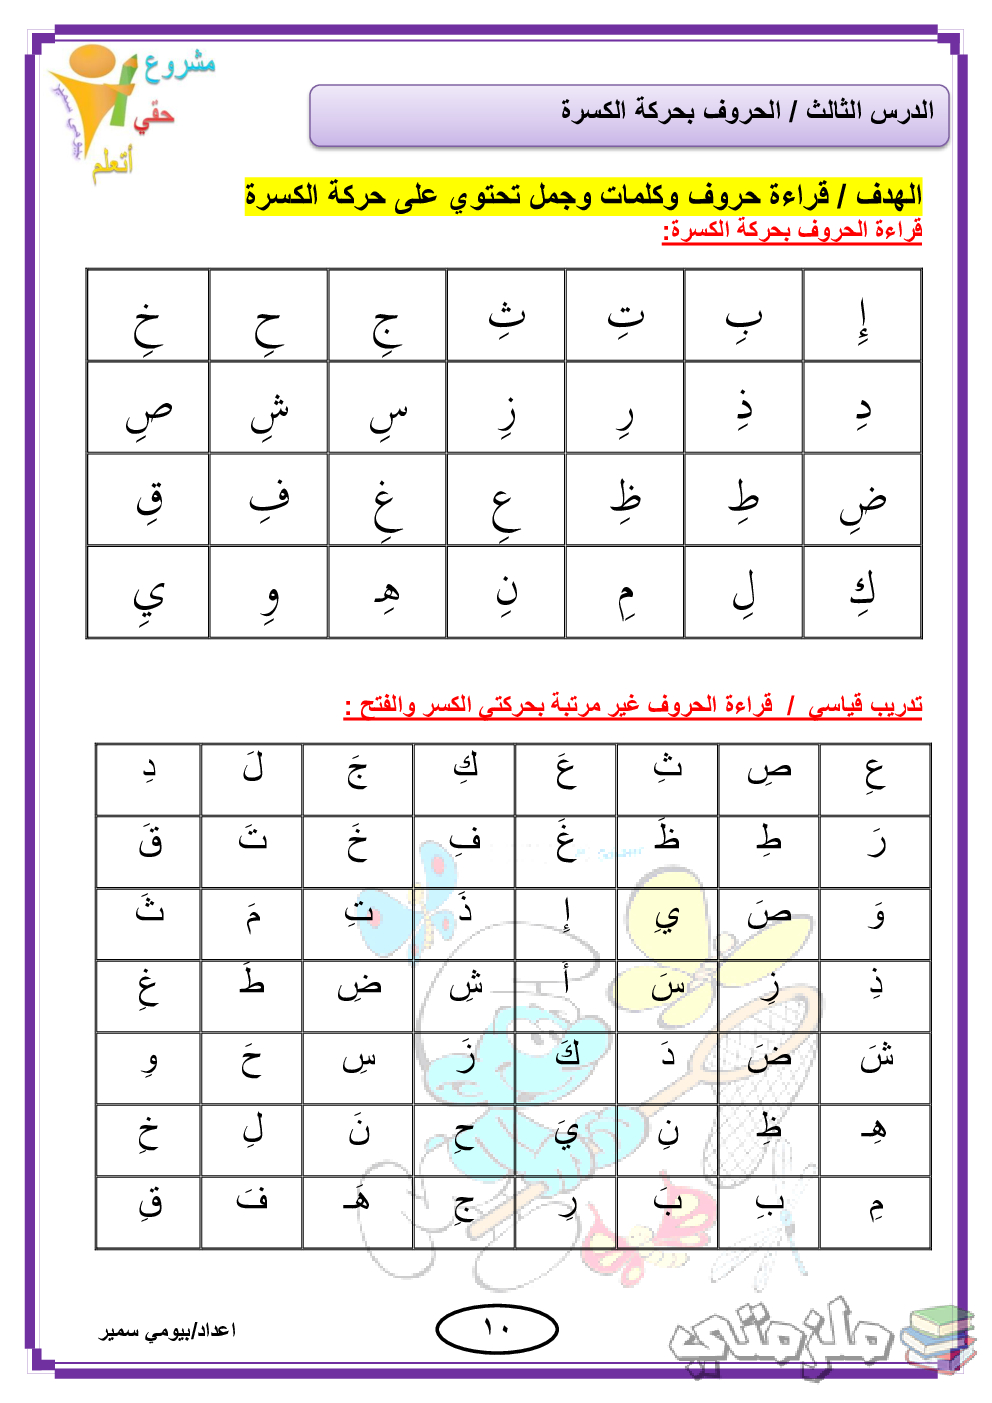 مشروع
حقي
أتعلم
بيومي سمير
الدرس الثالث / الحروف بحركة الكسرة
الهدف / قراءة حروف وكلمات وجمل تحتوي على حركة الكسرة
قراءة الحروف بحركة الكسرة:
إِ بِ تِ ثِ جِ حِ خِ
دِ ذِ رِ زِ سِ شِ صِ
ضِ طِ ظِ عِ غِ فِ قِ
كِ لِ مِ نِ هِـ وِ يِ
تدريب قياسي / قراءة الحروف غير مرتبة بحركتي الكسر والفتح :
عِ صِ ثِ عَ كِ جَ لَ دِ
رَ طِ ظَ غَ فِ خَ تَ قَ
وَ صَ يِ إِ ذَ تِ مَ ثَ
ذِ زِ سَ أَ شِ ضِ طَ غِ
شَ ضَ دَ كَ زَ سِ حَ وِ
هِـ ظِ نِ يَ حِ نَ لِ خِ
مِ بِ بَ رِ جِ هَـ فَ قِ
اعداد/بيومي سمير
١٠
ملزمتي